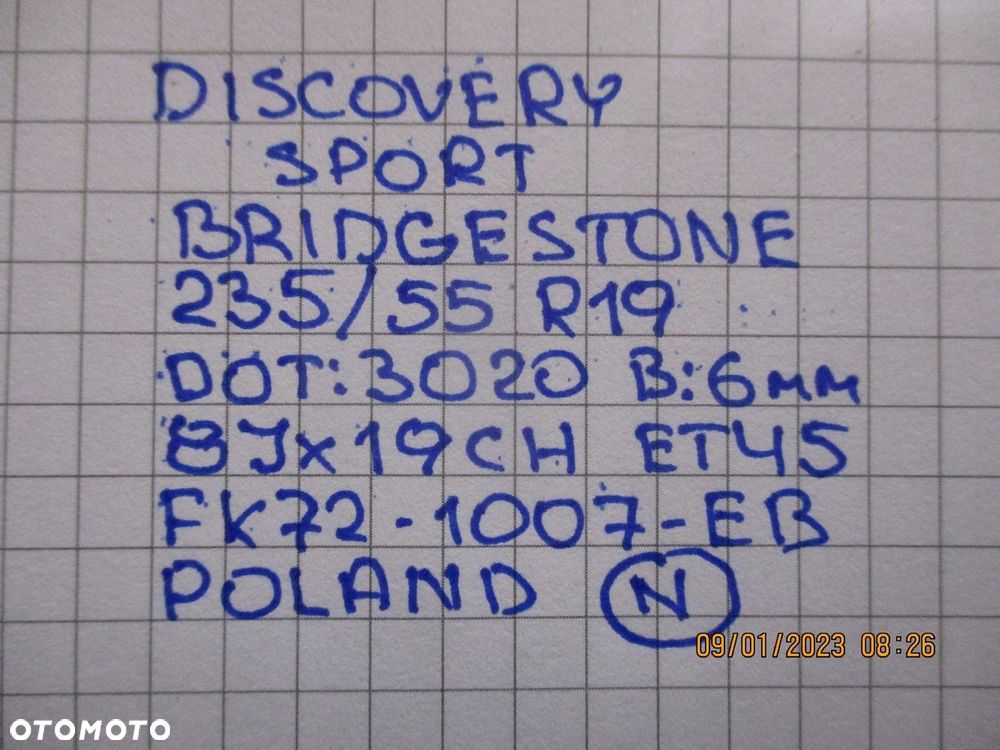 DISCOVERY
SPORT
BRIDGESTONE
235/55 R19
DOT:3020 B:6mm
8Jx19CH ET45
FK72-1007-EB
POLAND N
09/01/2023 08:26
OTOMOTO